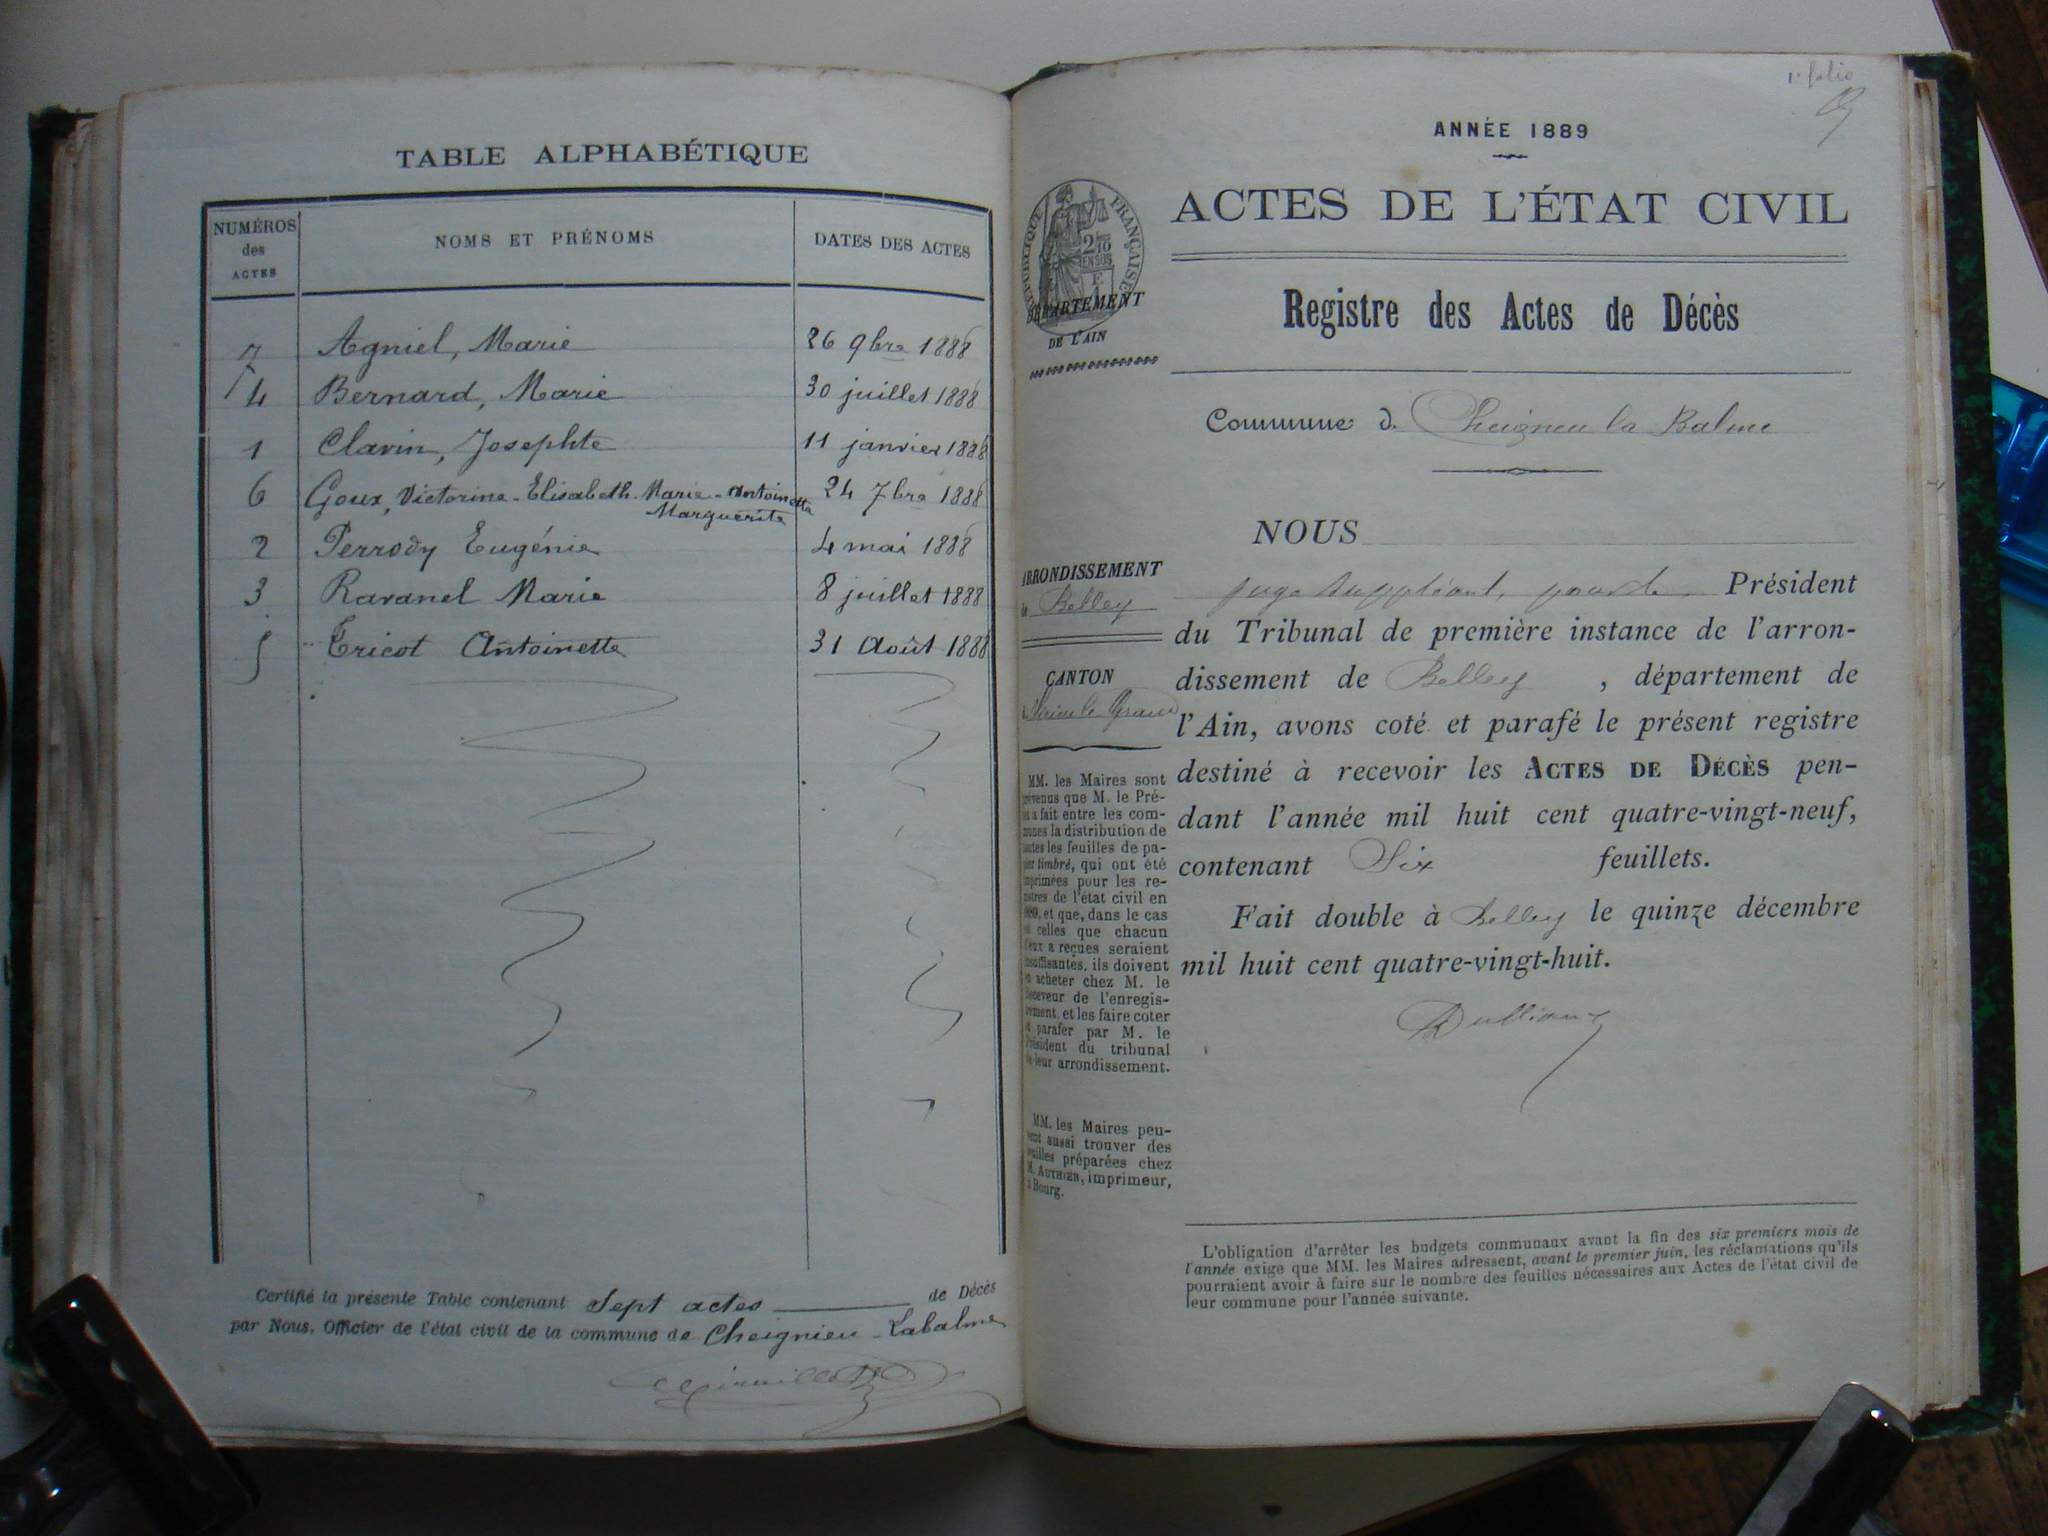 TABLE ALPHABÉTIQUE
NUMÉROS des ACTES NOMS ET PRÉNOMS DATES DES ACTES
7 Agniel, Marie 26 9bre 1888
4 Bernard, Marie 30 juillet 1888
1 Clavin, Josephte 11 janvier 1888
6 Goux, Victorine-Elisabeth-Marie-Antoinette 24 7bre 1888
Marguerite
2 Perrody Eugénie 4 mai 1888
3 Ravanel Marie 8 juillet 1888
5 Tricot Antoinette 31 Août 1888
Certifié la présente Table contenant Sept actes de Décès
par Nous, Officier de l'état civil de la commune de Cheignieu-Labalme
1er folio
ANNÉE 1889
ACTES DE L'ÉTAT CIVIL
RÉPUBLIQUE FRANÇAISE
2 10 EN SUS
DÉPARTEMENT
DE L'AIN
Registre des Actes de Décès
Commune de Cheignieu la Balme
ARRONDISSEMENT
de Belley
CANTON
Virieu le Grand
MM. les Maires sont
prévenus que M. le Pré-
fet a fait entre les com-
munes la distribution de
toutes les feuilles de pa-
pier timbré, qui ont été
imprimées pour les re-
gistres de l'état civil en
1889, et que, dans le cas
où celles que chacun
d'eux a reçues seraient
insuffisantes, ils doivent
en acheter chez M. le
Receveur de l'enregis-
trement, et les faire coter
et parafer par M. le
Président du tribunal
de leur arrondissement.
MM. les Maires peu-
vent aussi trouver des
feuilles préparées chez
M. AUTHIER, imprimeur,
à Bourg.
NOUS
juge suppléant, pour le Président
du Tribunal de première instance de l'arron-
dissement de Belley, département de
l'Ain, avons coté et parafé le présent registre
destiné à recevoir les ACTES DE DÉCÈS pen-
dant l'année mil huit cent quatre-vingt-neuf,
contenant Six feuillets.
Fait double à Belley le quinze décembre
mil huit cent quatre-vingt-huit.
L'obligation d'arrêter les budgets communaux avant la fin des six premiers mois de
l'année exige que MM. les Maires adressent, avant le premier juin, les réclamations qu'ils
pourraient avoir à faire sur le nombre des feuilles nécessaires aux Actes de l'état civil de
leur commune pour l'année suivante.